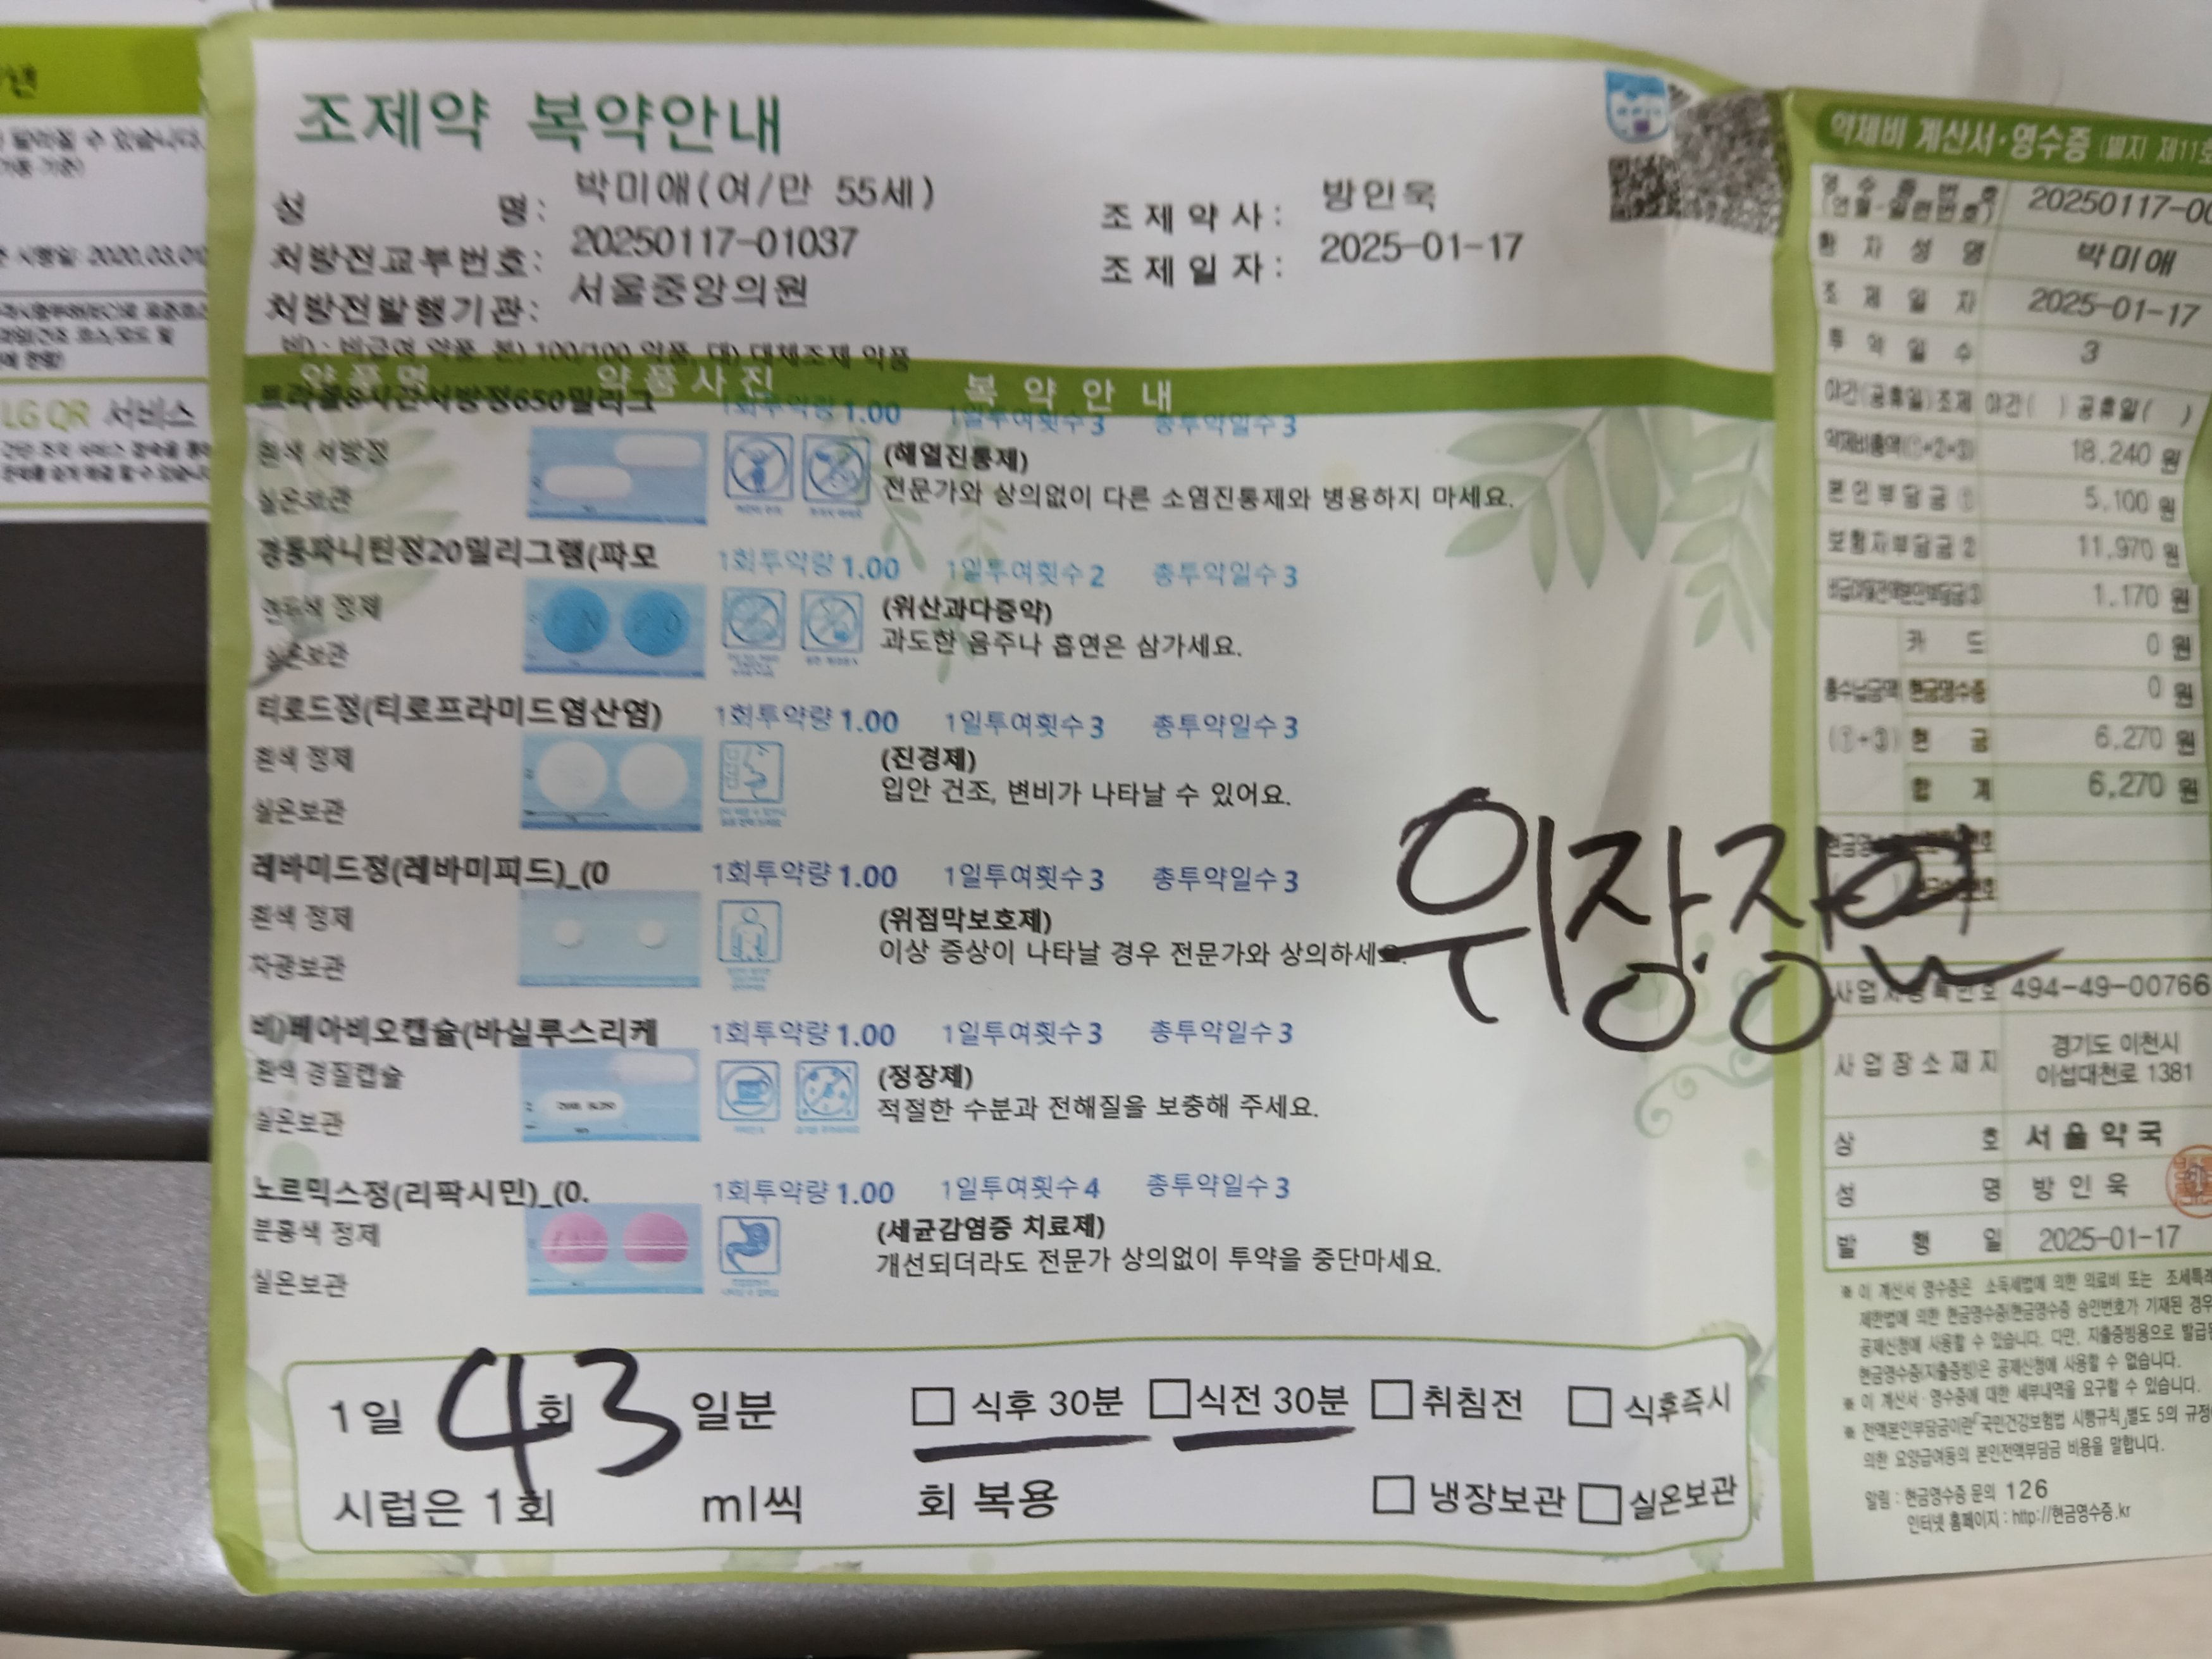 년
달라질 수 있습니다.
시행일: 2020.03.01
LG QR 서비스
조제약 복약안내
성 명: 박미애(여/만 55세)
처방전교부번호: 20250117-01037
처방전발행기관: 서울중앙의원
조제약사: 방인욱
조제일자: 2025-01-17
비) : 비급여 약품, 본) 100/100 약품, 대) 대체조제 약품
약품명 약품사진 복약안내
트라몰8시간서방정650밀리그 1회투약량 1.00 1일투여횟수 3 총투약일수 3
흰색 서방정
실온보관
(해열진통제)
전문가와 상의없이 다른 소염진통제와 병용하지 마세요.
경동파니틴정20밀리그램(파모 1회투약량 1.00 1일투여횟수 2 총투약일수 3
연두색 정제
실온보관
(위산과다증약)
과도한 음주나 흡연은 삼가세요.
티로드정(티로프라미드염산염) 1회투약량 1.00 1일투여횟수 3 총투약일수 3
흰색 정제
실온보관
(진경제)
입안 건조, 변비가 나타날 수 있어요.
레바미드정(레바미피드)_(0 1회투약량 1.00 1일투여횟수 3 총투약일수 3
흰색 정제
차광보관
(위점막보호제)
이상 증상이 나타날 경우 전문가와 상의하세요.
비)베아비오캡슐(바실루스리케 1회투약량 1.00 1일투여횟수 3 총투약일수 3
흰색 경질캡슐
실온보관
(정장제)
적절한 수분과 전해질을 보충해 주세요.
노르믹스정(리팍시민)_(0. 1회투약량 1.00 1일투여횟수 4 총투약일수 3
분홍색 정제
실온보관
(세균감염증 치료제)
개선되더라도 전문가 상의없이 투약을 중단마세요.
위장장염
1일 4회 3일분 식후 30분 식전 30분 취침전 식후즉시
시럽은 1회 ml씩 회 복용 냉장보관 실온보관
약제비 계산서·영수증 (별지 제11호
영수증번호 (연월-일련번호) 20250117-00
환자성명 박미애
조제일자 2025-01-17
투약일수 3
야간(공휴일)조제 야간( ) 공휴일( )
약제비총액(①+②+③) 18,240 원
본인부담금① 5,100 원
보험자부담금② 11,970 원
1,170 원
카드 0 원
총수납금액 현금영수증 0 원
(①+③) 현금 6,270 원
합계 6,270 원
사업자등록번호 494-49-00766
사업장소재지 경기도 이천시
이섭대천로 1381
상호 서울약국
성명 방인욱
발행일 2025-01-17
※ 이 계산서 영수증은 소득세법에 의한 의료비 또는 조세특례
제한법에 의한 현금영수증(현금영수증 승인번호가 기재된 경우
공제신청에 사용할 수 있습니다. 다만, 지출증빙용으로 발급된
현금영수증(지출증빙)은 공제신청에 사용할 수 없습니다.
※ 이 계산서·영수증에 대한 세부내역을 요구할 수 있습니다.
※ 전액본인부담금이란「국민건강보험법 시행규칙」별도 5의 규정에
의한 요양급여동의 본인전액부담금 비용을 말합니다.
알림 : 현금영수증 문의 126
인터넷 홈페이지 : http://현금영수증.kr